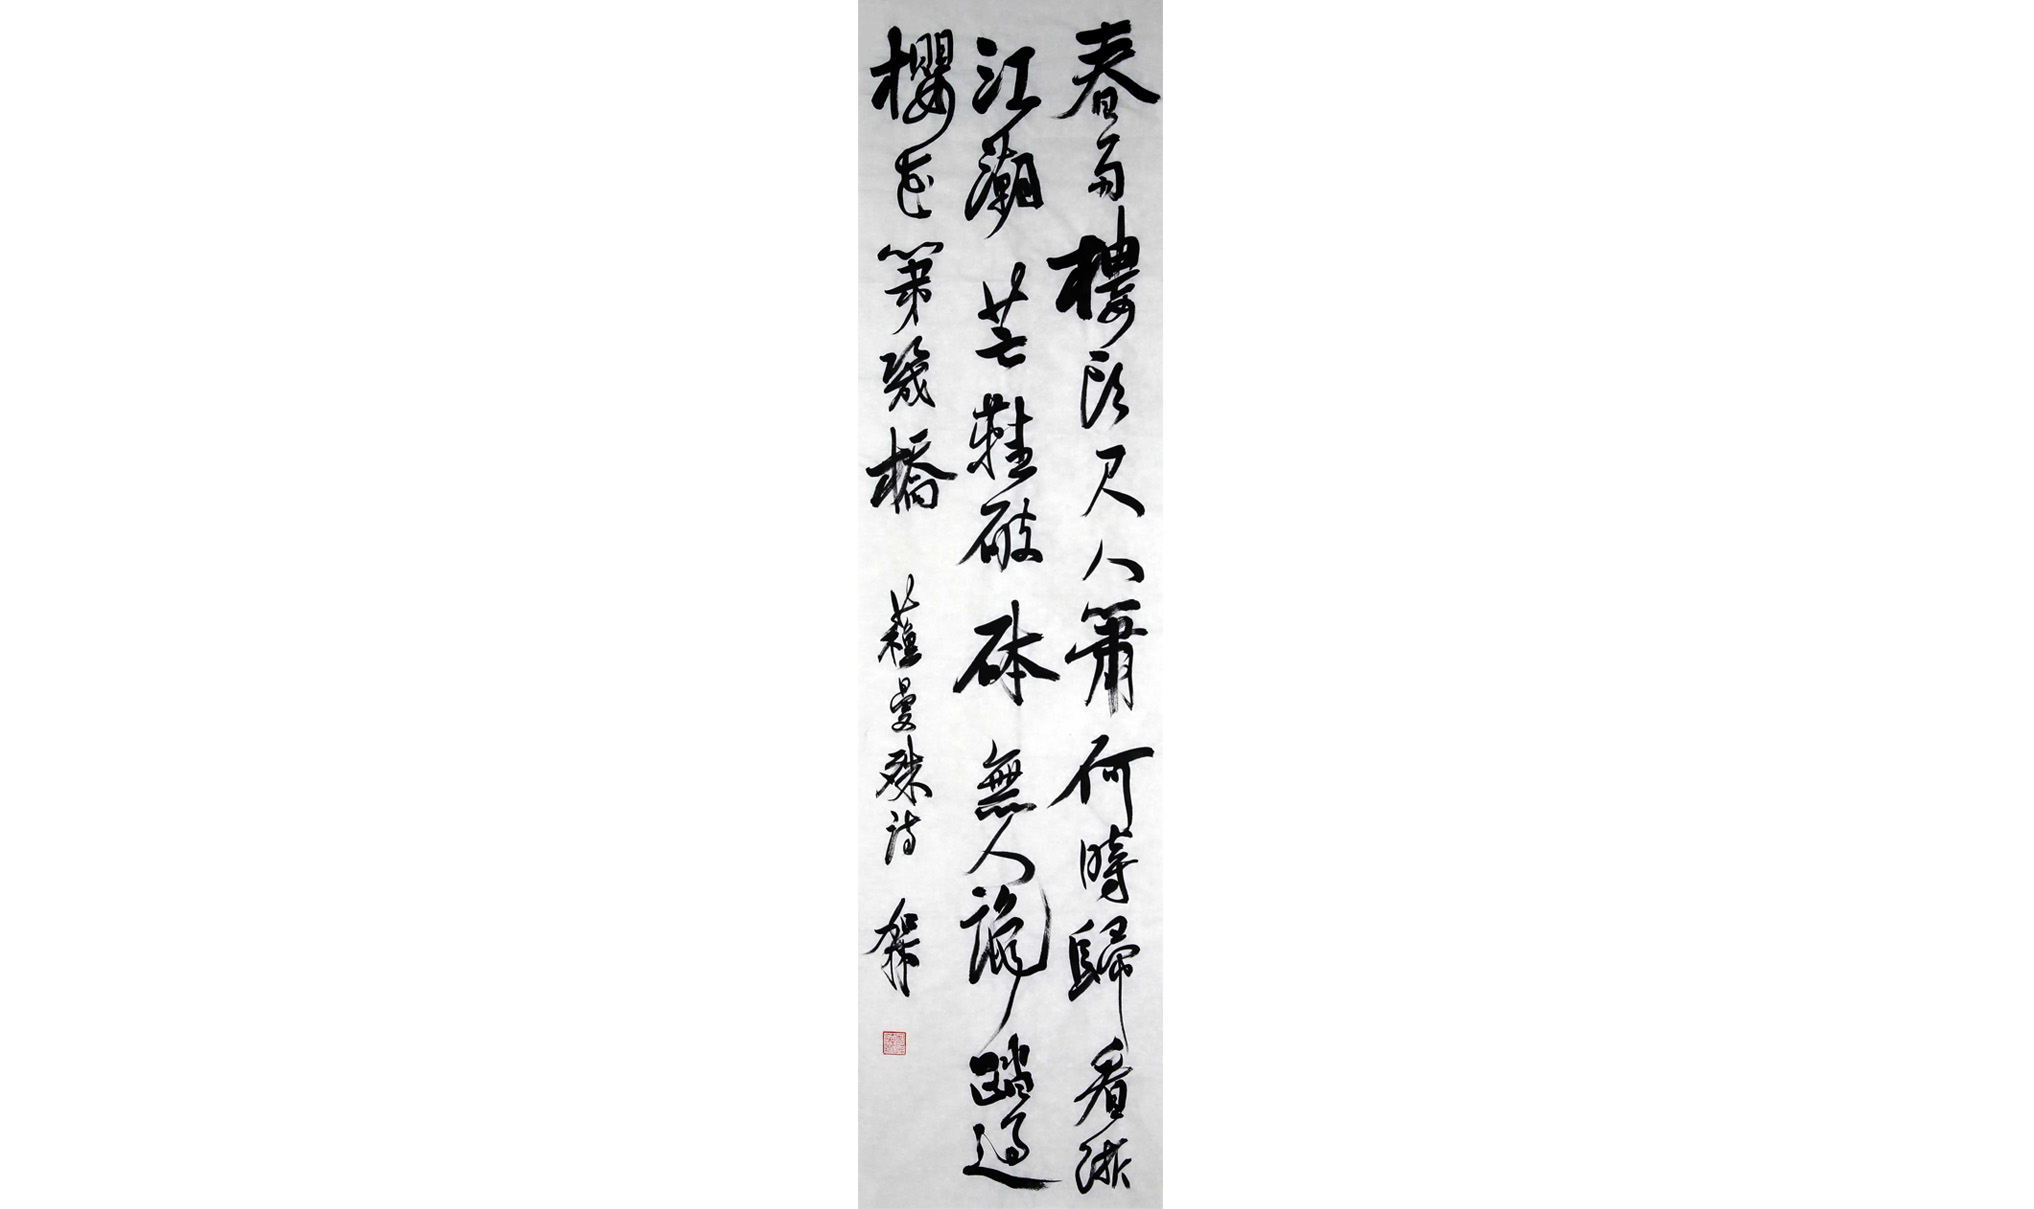 春雨樓頭尺八簫何時歸看浙
江潮芒鞋破砵無人識踏過
櫻花第幾橋 蘇曼殊詩